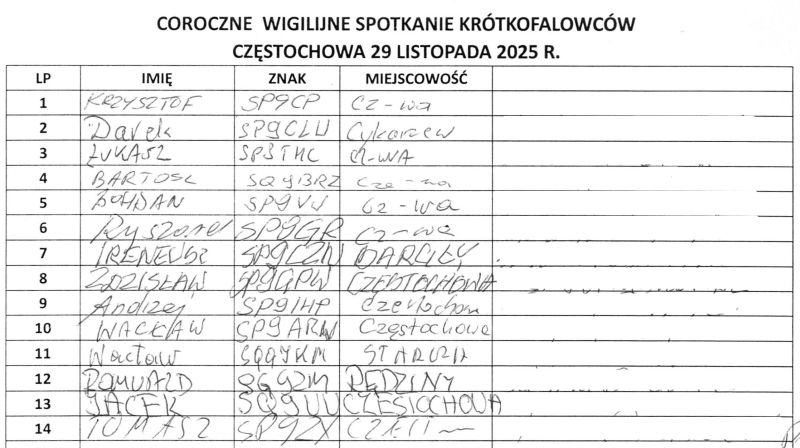 COROCZNE WIGILIJNE SPOTKANIE KRÓTKOFALOWCÓW
CZĘSTOCHOWA 29 LISTOPADA 2025 R.
LP IMIĘ ZNAK MIEJSCOWOŚĆ
1 KRZYSZTOF SP9CP Cz-wa
2 Darek SP9CLU Cykarzew
3 ŁUKASZ CZ-WA
4 BARTOSZ SQ9BRZ Cze-wa
5 BOHDAN SP9VV Cz-wa
6 Ryszard SP9GR Cz-wa
7 IRENEUSZ SP9CZN
8 ZDZISŁAW SP9GPW CZĘSTOCHOWA
9 Andrzej SP9IHP Częstochowa
10 WACŁAW SP9ARW Częstochowa
11 Wacław SQ9YKM
12 ROMUALD RĘDZINY
13 JACEK SQ9UU CZĘSTOCHOWA
14 TOMASZ SP9ZX